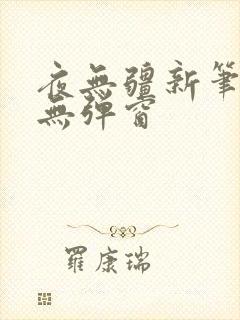 夜無疆新筆
無彈窗
羅康瑞